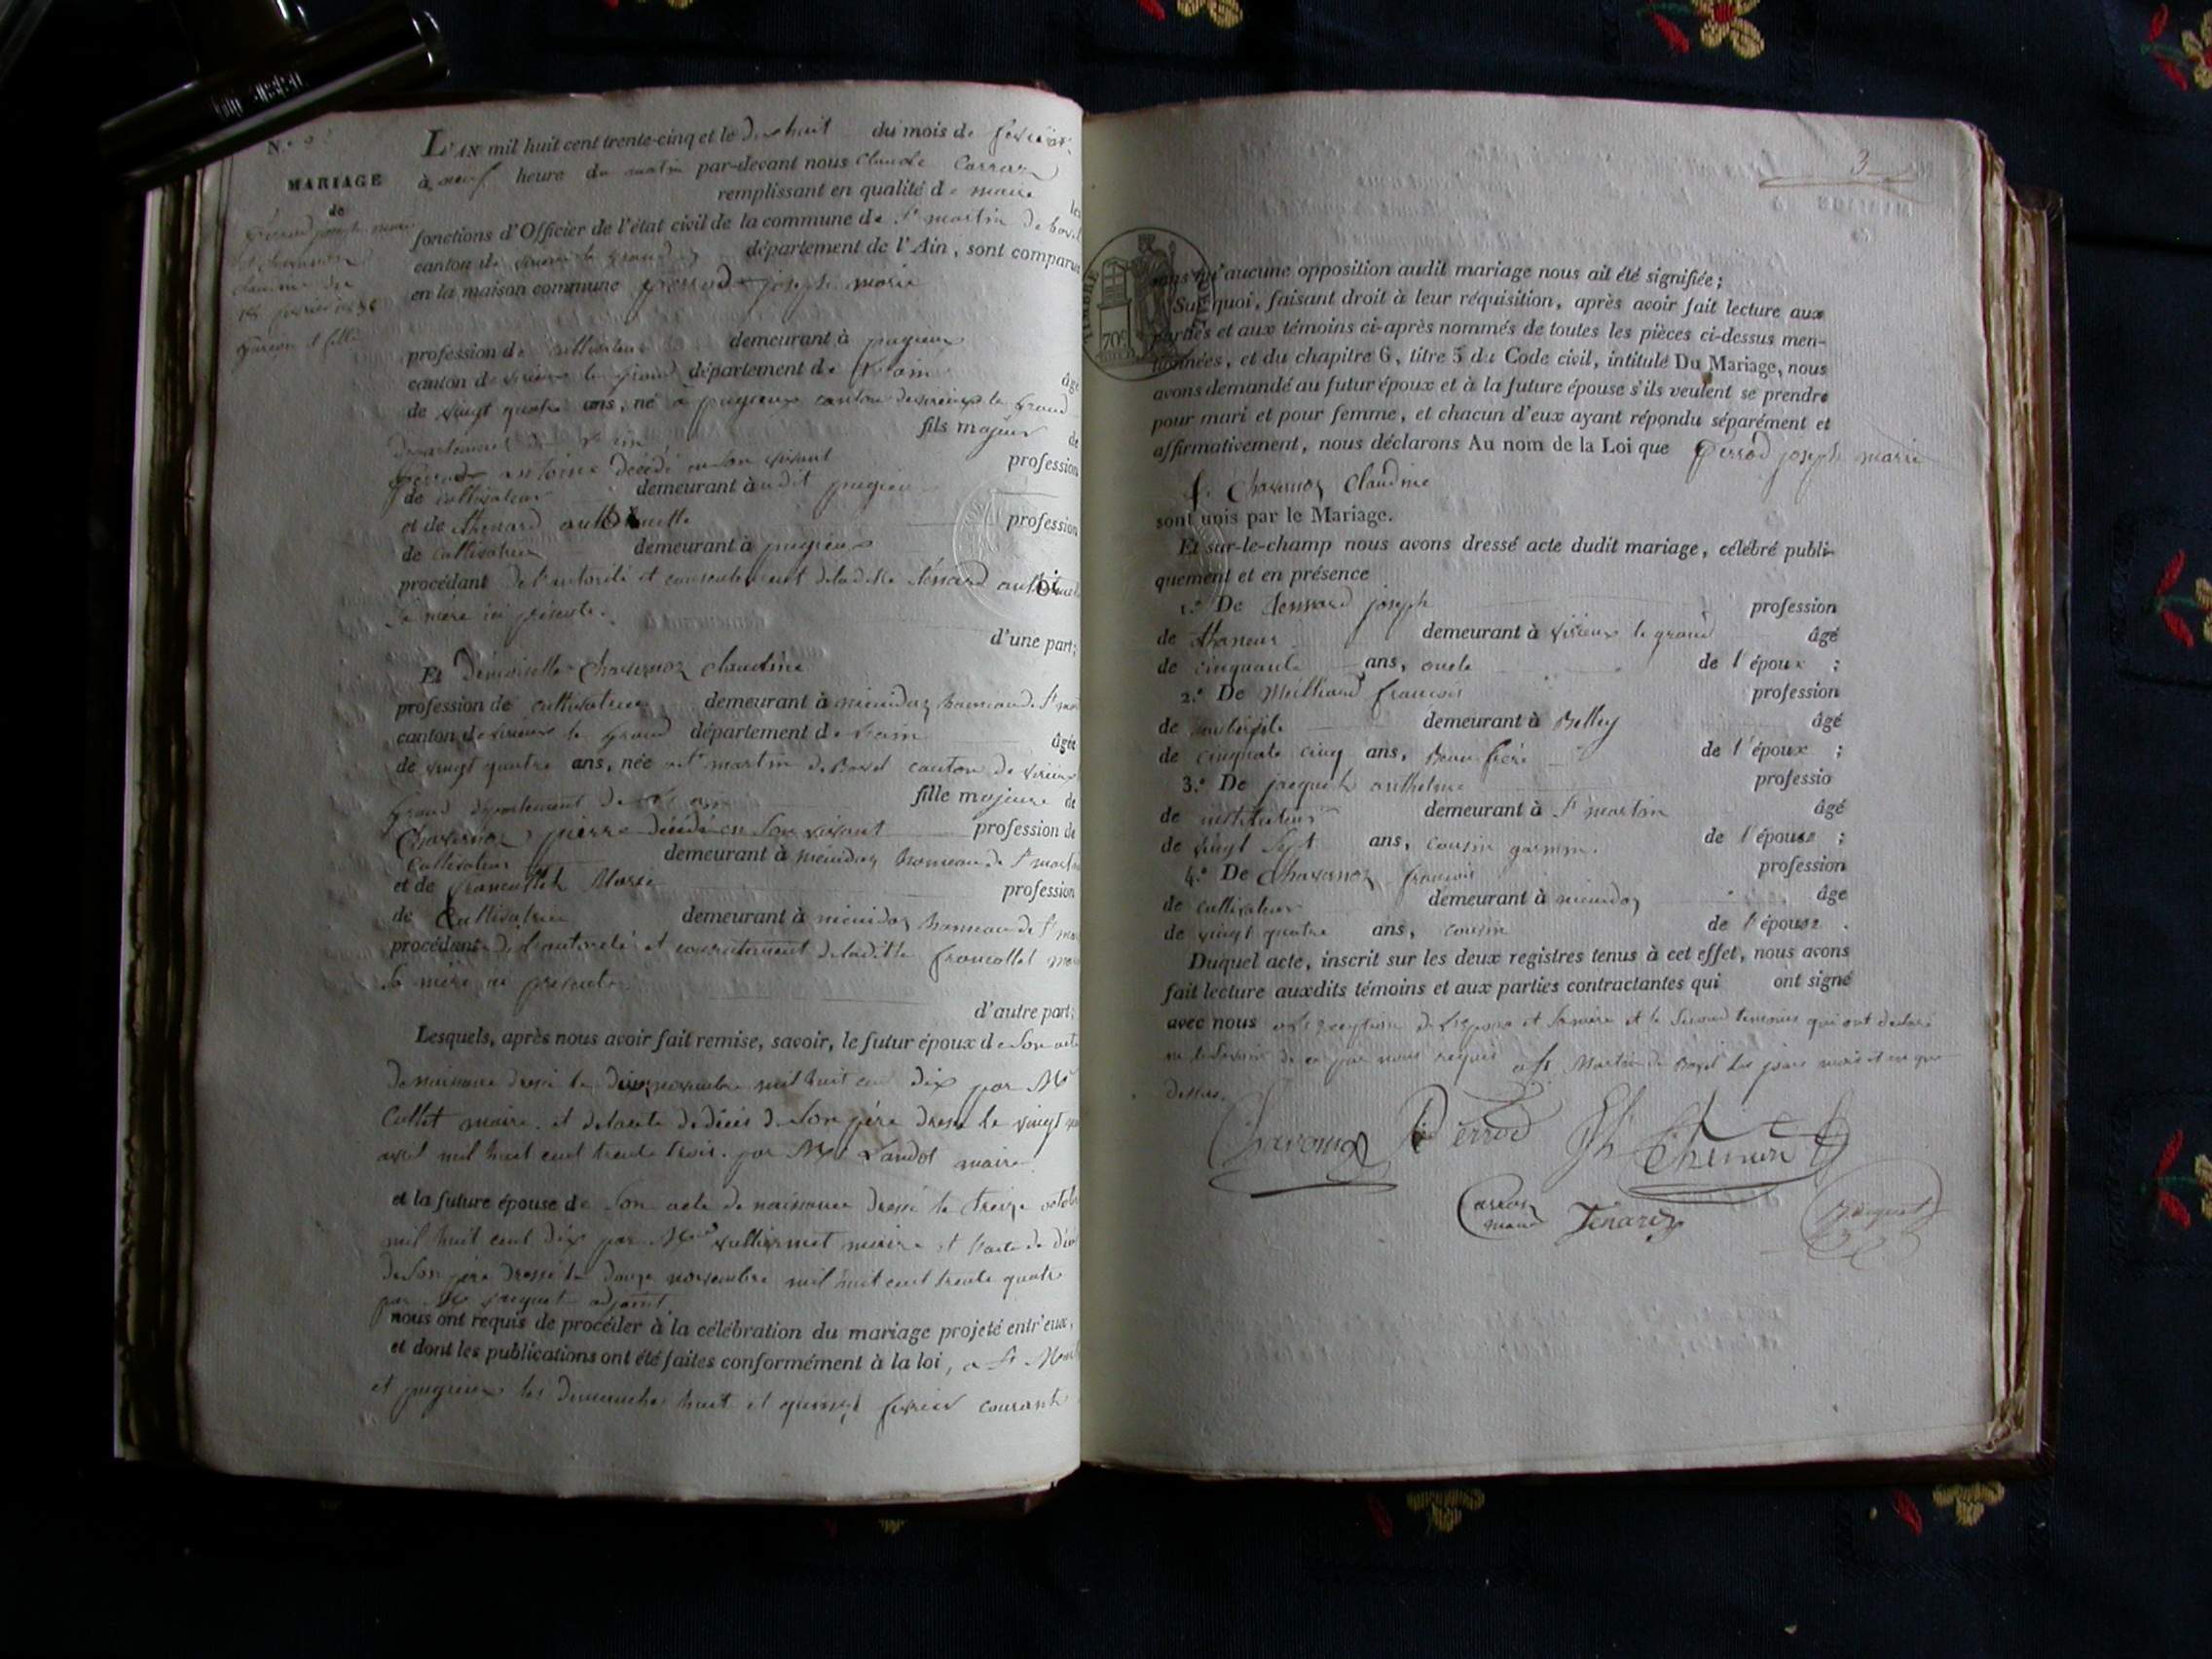 N.° 2
MARIAGE
de
Perrod joseph marie
et chavanoz
claudine du
18 fevrier 1835
garcon et fille
L'AN mil huit cent trente-cinq et le dixhuit du mois de fevrier
à neuf heure du matin par-devant nous Claude Carraz
remplissant en qualité de maire les
fonctions d'Officier de l'état civil de la commune de St martin de bavel
canton de virieux le grand département de l'Ain, sont comparus
en la maison commune perrod joseph marie
profession de cultivateur demeurant à pugieux
canton de virieux le grand département de l'ain âgé
de vingt quatre ans, né a pugieux canton de virieux le grand
departement de l'ain fils majeur de
perrod antoine décédé en son vivant profession
de cultivateur demeurant à udit pugieu
et de thenard anthoinette profession
de cultivatrice demeurant à pugieux
procédant de l'autorité et consentement de ladite ténard
sa mère ici présente.
d'une part;
Et Demoiselle Chavanoz claudine
profession de cultivatrice demeurant à hameau de St
canton de virieux le grand département de l'ain âgée
de vingt quatre ans, née a St martin de Bavel canton de virieux
grand département de l'ain fille majeure de
Chavanoz pierre décédé en son vivant profession de
cultivateur demeurant à hameau de St
et de francollet Marie profession
de Cultivatrice demeurant à hameau de St
procédant de l'autorité et consentement de ladite francollet
sa mère ici presente
d'autre part;
Lesquels, après nous avoir fait remise, savoir, le futur époux de son acte
de naissance dressé le novembre mil huit cent dix par Mr
Cullet maire et de l'acte de décès de son père dressé le vingt
avril mil huit cent trente trois. par Mr Landot maire
et la future épouse de son acte de naissance dressé le treize octobre
mil huit cent dix par Mr vulliermet maire et l'acte de décès
de son père dressé le douze novembre mil huit cent trente quatre
par Mr jacquet adjoint
nous ont requis de procéder à la célébration du mariage projeté entr'eux,
et dont les publications ont été faites conformément à la loi, a St Martin
et pugieux les dimanches huit et quinze fevrier courant
3
TIMBRE
70c
sans qu'aucune opposition audit mariage nous ait été signifiée;
Sur quoi, faisant droit à leur réquisition, après avoir fait lecture aux
parties et aux témoins ci-après nommés de toutes les pièces ci-dessus men-
tionnées, et du chapitre 6, titre 5 du Code civil, intitulé Du Mariage, nous
avons demandé au futur époux et à la future épouse s'ils veulent se prendre
pour mari et pour femme, et chacun d'eux ayant répondu séparément et
affirmativement, nous déclarons Au nom de la Loi que perrod joseph marie
et Chavanoz Claudine
sont unis par le Mariage.
Et sur-le-champ nous avons dressé acte dudit mariage, célébré publi-
quement et en présence
1.° De tennard joseph profession
de demeurant à virieux le grand âgé
de cinquante ans, oncle de l'époux ;
2.° De Meilliand francois profession
de demeurant à Belley âgé
de cinquate cinq ans, Beau frère de l'époux ;
3.° De jacquet anthelme professio
de instituteur demeurant à St martin âgé
de vingt sept ans, cousin germin. de l'épouse ;
4.° De Chavanoz francois profession
de cultivateur demeurant à âge
de vingt quatre ans, cousin de l'épouse .
Duquel acte, inscrit sur les deux registres tenus à cet effet, nous avons
fait lecture auxdits témoins et aux parties contractantes qui ont signé
avec nous a l'exception de l'épouse et sa mère et le second temoins qui ont declaré
ne le savoir de ce par nous requis a St Martin de Bavel les jours mois et an que
dessus.
Chavanoz Perrod Thenard
Carraz
maire Ténard Jacquet